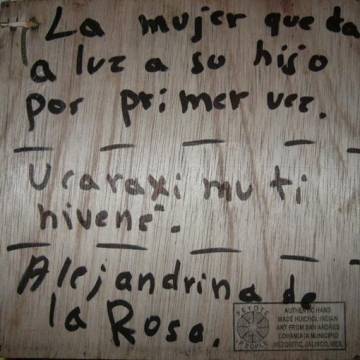 La mujer que da
a luz a su hijo
por primer vez.
Ucaraxi mu ti
nivene".
Alejandrina de
la Rosa.
PEYOTE
PEOPLE
AUTHENTIC HAND
MADE HUICHOL INDIAN
ART FROM SAN ANDRES
COHAMIATA MUNICIPIO
MEZQUITIC, JALISCO, MEX.